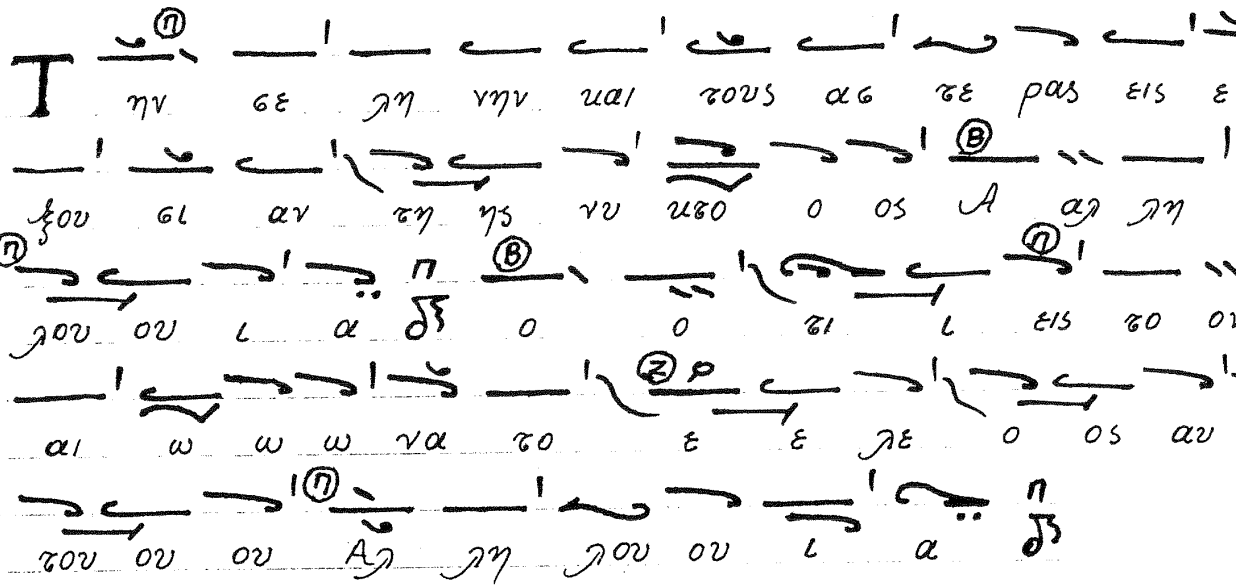 Τ ην σε λη νην και τους ασ τε ρας εις ε
ξου σι αν τη ης νυ κτο ο ος Α αλ λη
λου ου ι α ο ο τι ι εις το ον
αι ω ω ω να το ε ε λε ο ος αυ
του ου ου Αλ λη λου ου ι α